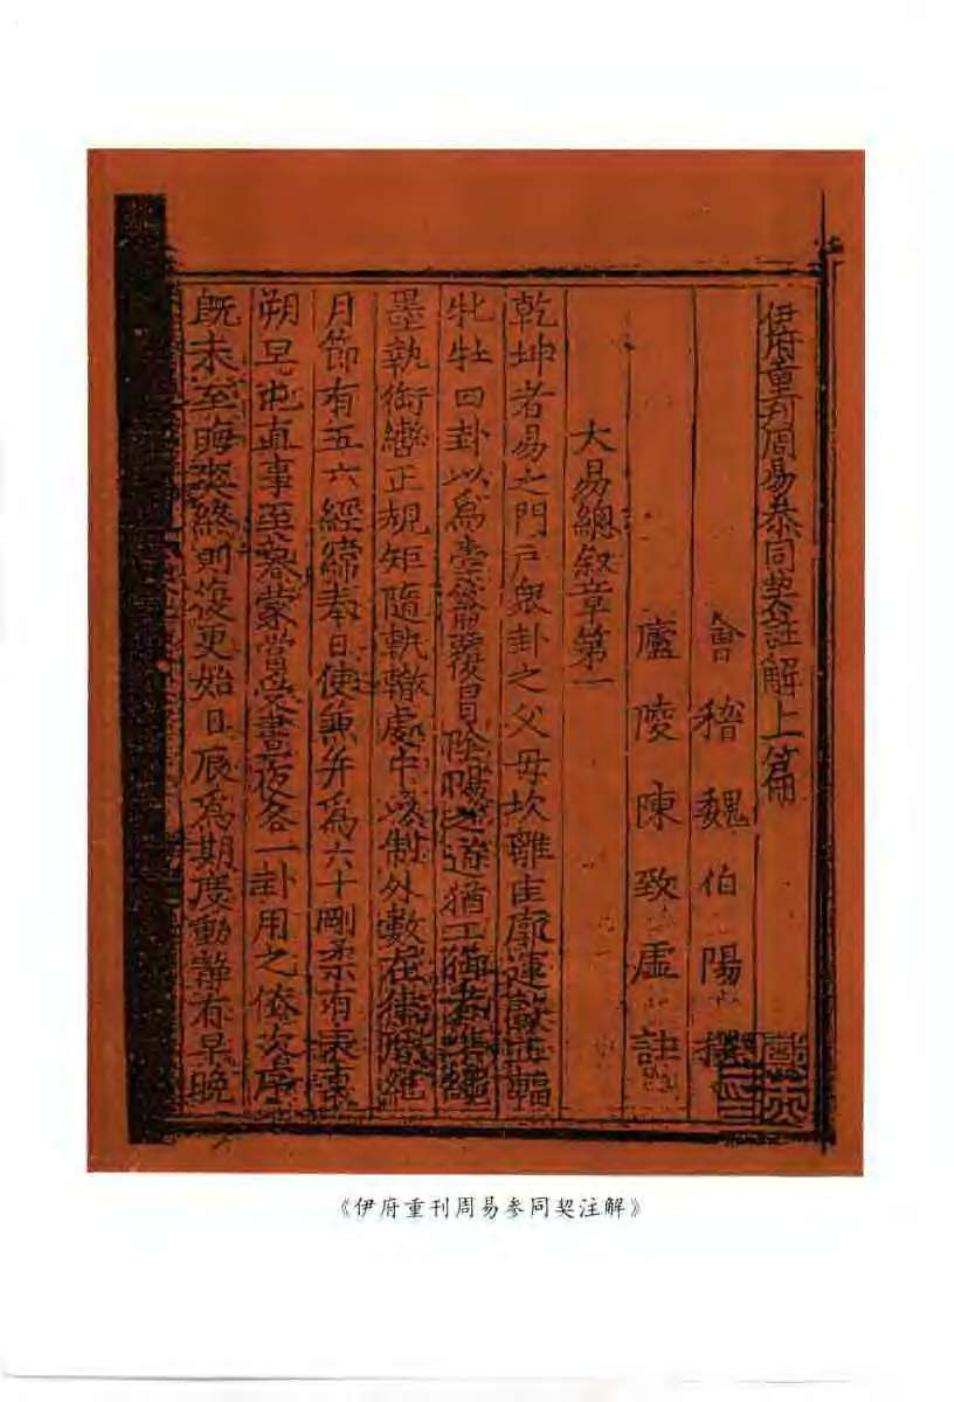 伊府重刊周易叅同契註解上篇
會稽魏伯陽撰
廬陵陳致虛註
大易總敘章第一
乾坤者易之門戶衆卦之父母坎離匡廓運轂正輻
牝牡四卦以爲橐籥覆冒陰陽之道猶工御者準繩
墨執銜轡正規矩隨軌轍處中以制外數在律曆紀
月節有五六經緯奉日使兼并爲六十剛柔有表裏
朔旦屯直事至暮蒙當受晝夜各一卦用之依次序
既未至晦爽終則復更始日辰爲期度動靜有早晚
《伊府重刊周易参同契注解》